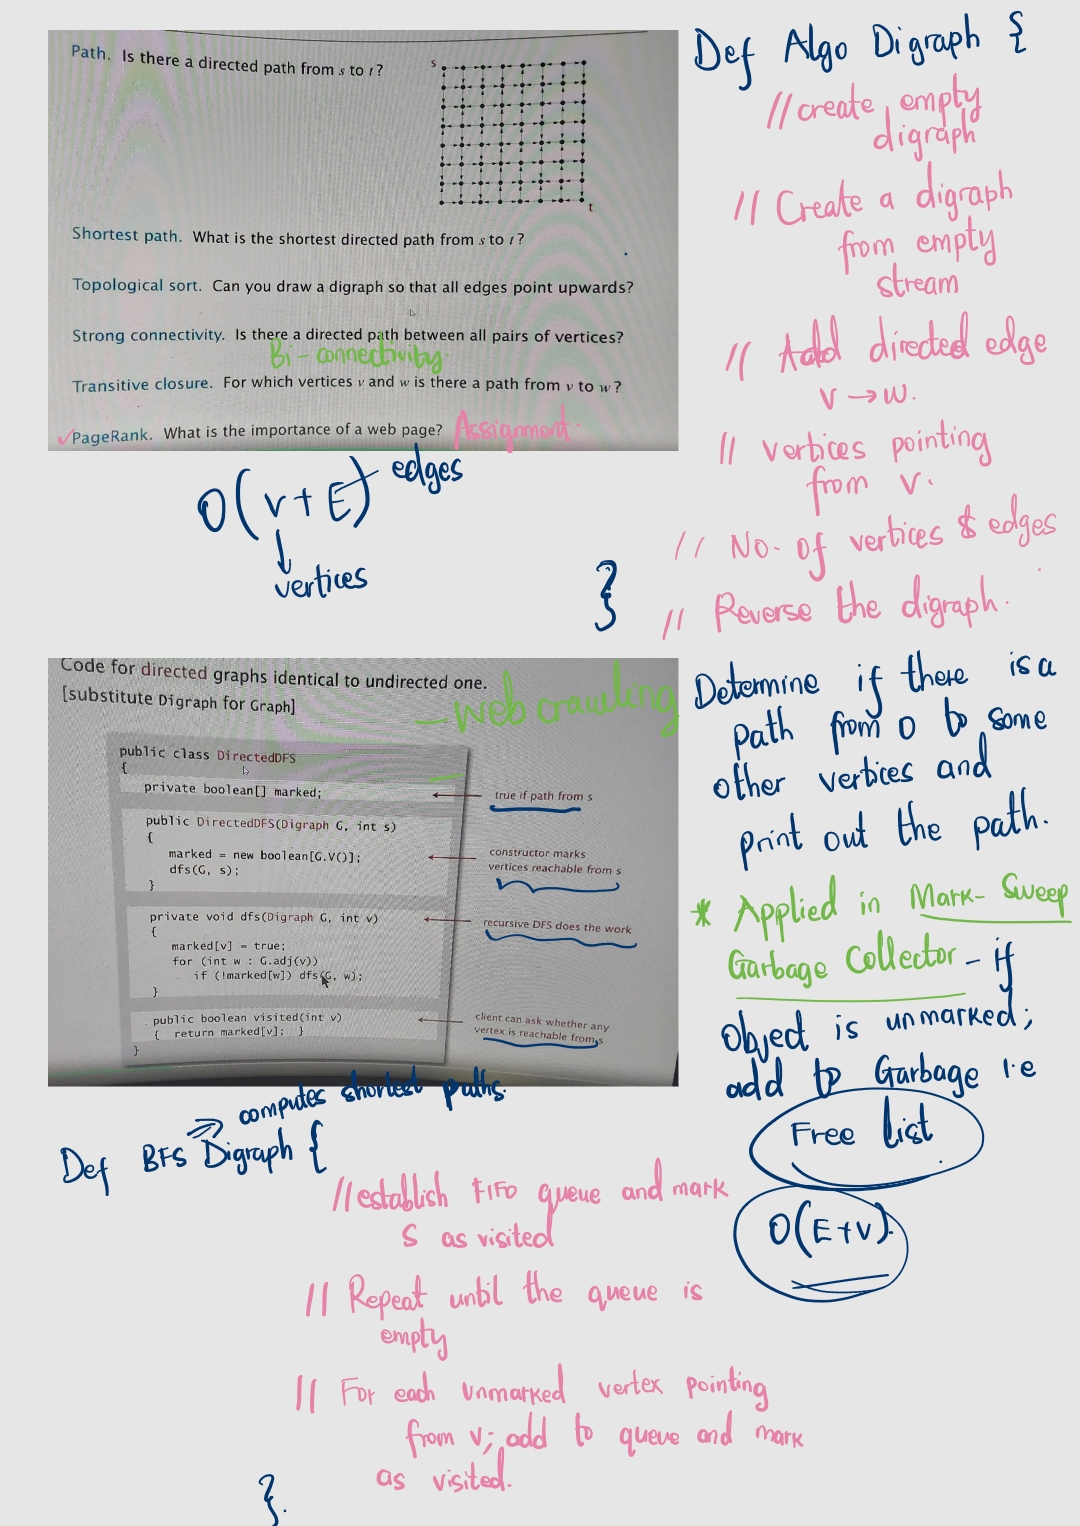 Path. Is there a directed path from s to t?
s
t
Shortest path. What is the shortest directed path from s to t?
Topological sort. Can you draw a digraph so that all edges point upwards?
Strong connectivity. Is there a directed path between all pairs of vertices?
Bi-connectivity
Transitive closure. For which vertices v and w is there a path from v to w?
✓PageRank. What is the importance of a web page? Assignment
O(V+E) edges
vertices
Def Algo Digraph {
// create empty
digraph
// Create a digraph
from empty
stream
// Add directed edge
v → w.
// vertices pointing
from v.
// No. of vertices & edges
// Reverse the digraph.
}
Code for directed graphs identical to undirected one.
[substitute Digraph for Graph]
- Web crawling
public class DirectedDFS
{
private boolean[] marked;
true if path from s
public DirectedDFS(Digraph G, int s)
{
marked = new boolean[G.V()];
dfs(G, s);
}
constructor marks
vertices reachable from s
private void dfs(Digraph G, int v)
{
marked[v] = true;
for (int w : G.adj(v))
if (!marked[w]) dfs(G, w);
}
recursive DFS does the work
public boolean visited(int v)
{ return marked[v]; }
}
client can ask whether any
vertex is reachable from s
Determine if there is a
path from 0 to some
other vertices and
print out the path.
* Applied in Mark-Sweep
Garbage Collector - if
object is unmarked;
add to Garbage i.e
Free list
O(E+V).
⇒ computes shortest paths.
Def BFS Digraph {
// establish FIFO queue and mark
S as visited
// Repeat until the queue is
empty
// For each unmarked vertex pointing
from v; add to queue and mark
as visited.
}.